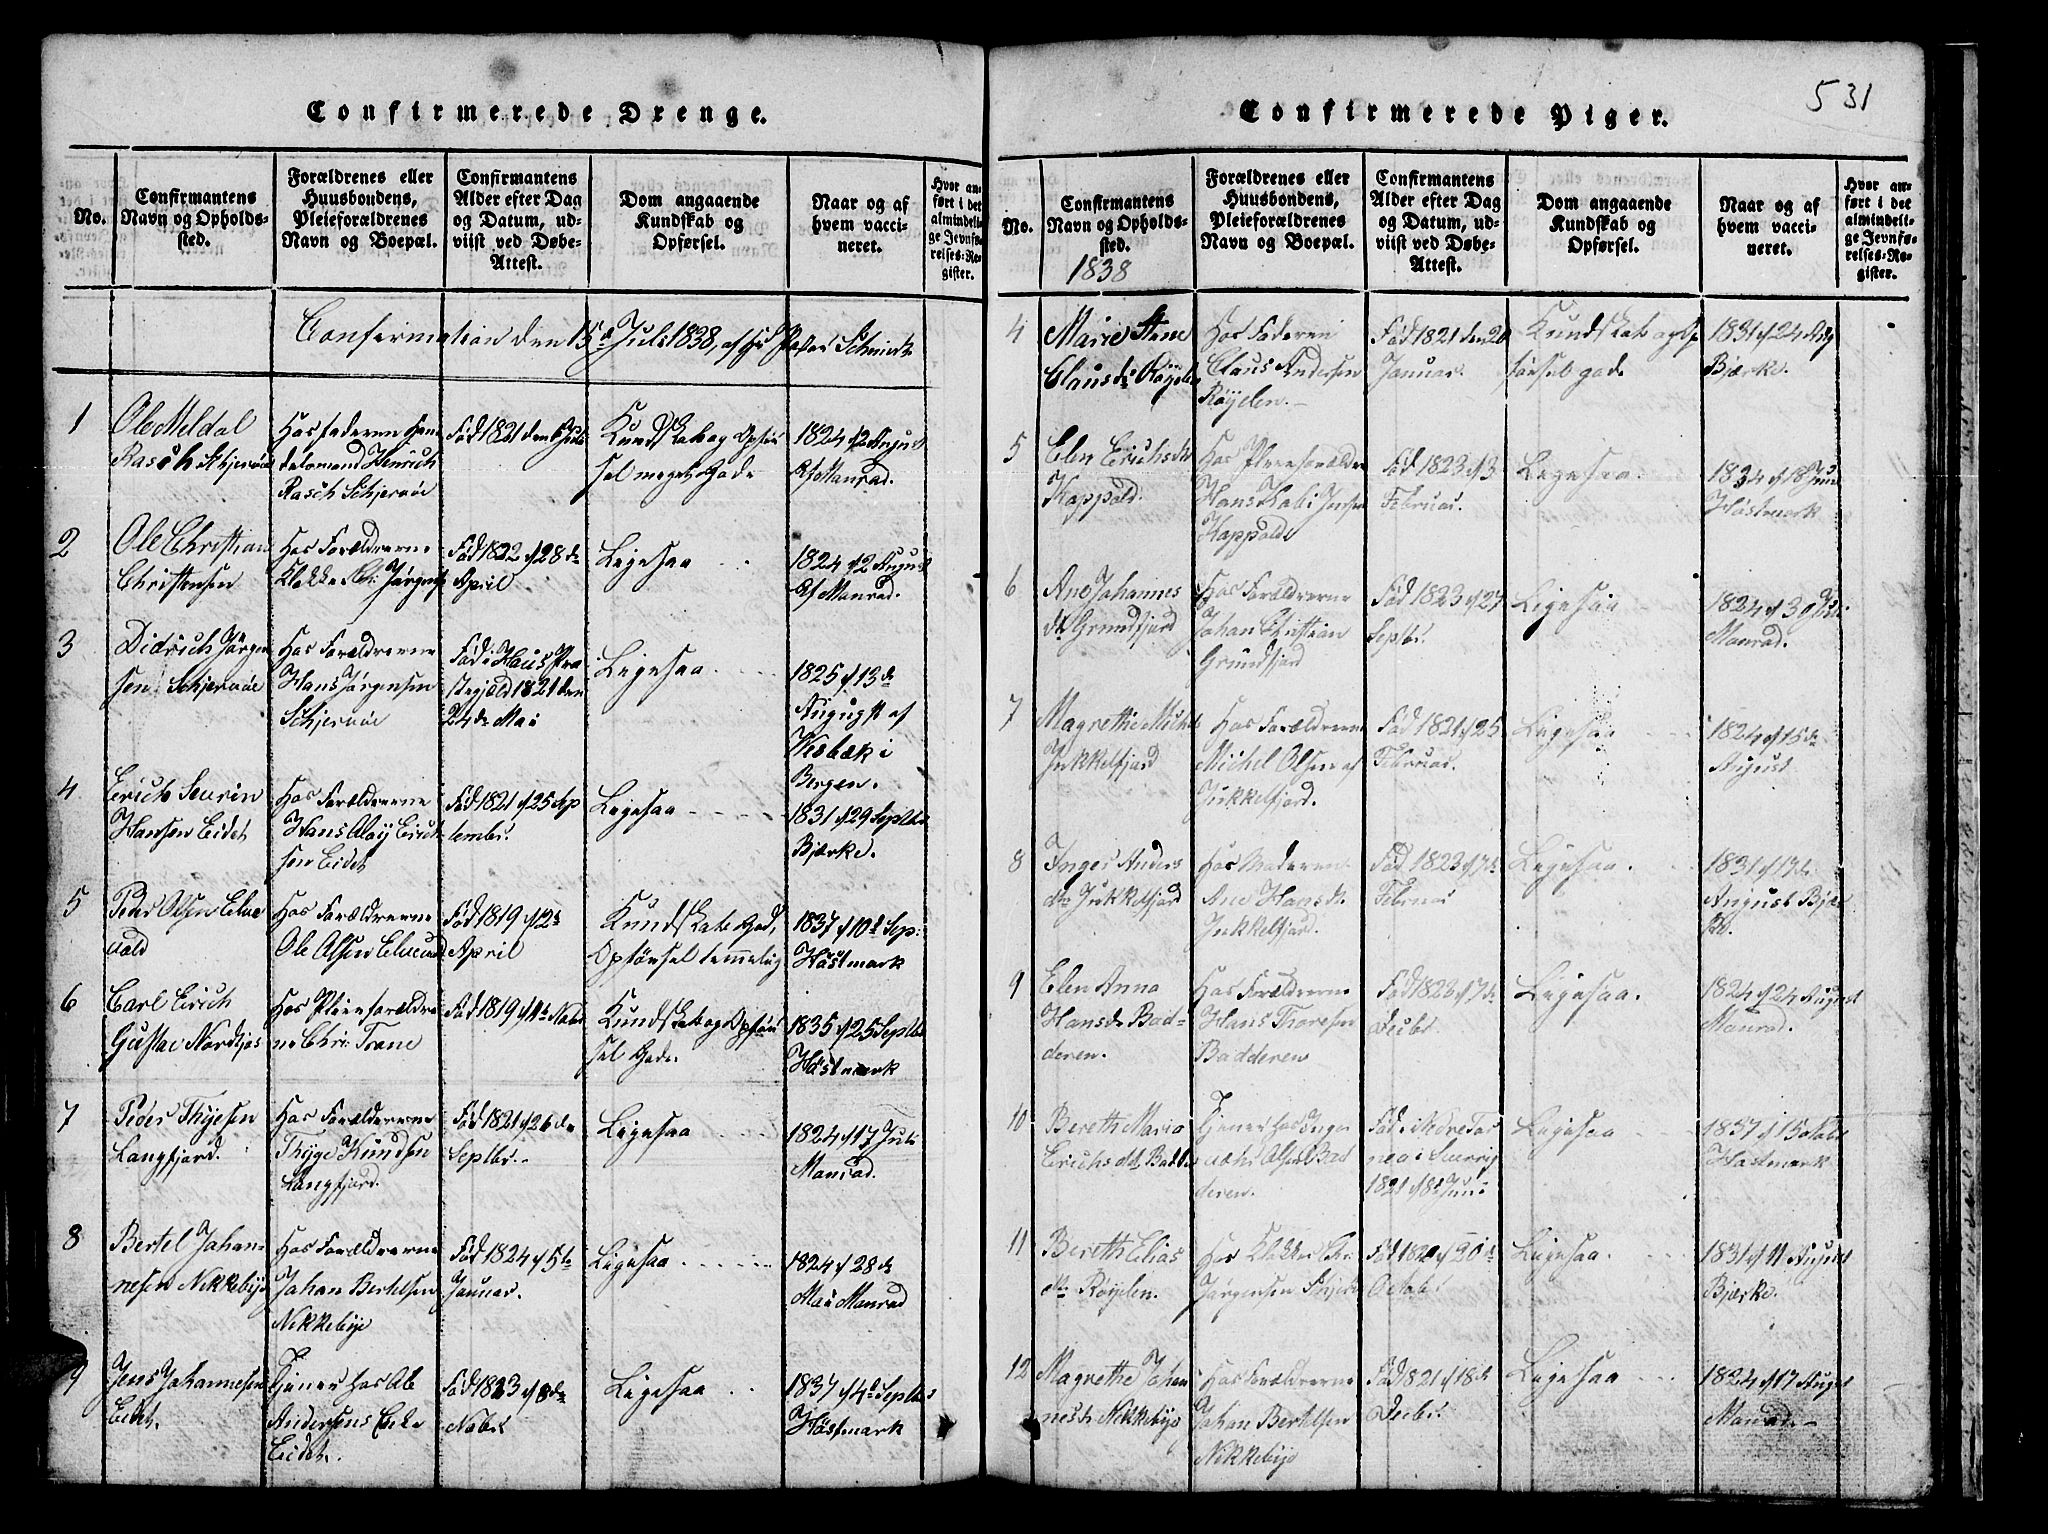 Confirmerede Drenge.
No.
Confirmantens
Navn og Opholds-
sted.
Forældrenes eller
Huusbondens,
Pleieforældrenes
Navn og Boepæl.
Confirmantens
Alder efter Dag
og Datum, ud-
viist ved Døbe-
Attest.
Dom angaaende
Kundskab og
Opførsel.
Naar og af
hvem vacci-
neret.
Hvor an-
ført i det
almindeli-
ge Jevnfø-
relses-Re-
gister.
Confirmation den 15de Juli 1838, af Hr Pastor Schmidt
1
Ole Meldal
Rasch Skjervøe
Hos faderen Han-
delsmand Henrich
Rasch Schjervöe
Fød 1821 den
Kundskab og Opför
sel meget Gode
1824 d 2 August
Af Monrad.
2
Ole Christian
Christensen
Hos Forældrerne
Klokker Chr: Jörgens
Fød 1822 d 28de
April
Ligesaa
1824 d 2 August
Af Monrad.
3
Didrich Jörgen
sen Schjervöe
Hos Forældrerne
Hans Jörgensen
Schjervöe
Fød i Haus Præ
stegjeld 1821 den
24de Mai
Ligesaa
1825 d 13de
August af
Wesbæk i
Bergen.
4
Erich Seurin
Hansen Eidet
Hos Forældrerne
Hans Eric
sen Eidet
Fød 1821 d 25 Sep
tembr.
Ligesaa
1831 d 29 Septbr
Bjerke.
5
Peder Olsen Elve
vold
Hos Forældrerne
Ole Olsen Elvevold
Fød 1819 d 12te
April
Kundskab God,
Opförsel temmelig
1837 d 10de Sep:
Höstmark
6
Carl Erich
Gustav Nordfjos
Hos Pleieforældre
ne Chr: Trane
Fød 1819 d 4de Nobr
Kundskab og Opför
sel Gode.
1835 d 25 Septbr
Höstmark
7
Peder Thygesen
Langfjord.
Hos Forældrerne
Thyge Knudsen
Langfjord.
Fød 1821 d 26de
Septbr.
Ligesaa
1824 d 17 Juli
Monrad.
8
Bertel Johan-
nesen Nikkebye
Hos Forældrerne
Johan Bertelsen
Nikkebye
Fød 1824 d 5te
Januar.
Ligesaa
1824 d 28de
Mai Monrad
9
Jens Johannesen
Eidet.
Tjener hos Ab
Andersens Enke
Eidet.
Fød 1823 d 8de
Nobr
Ligesaa
1837 d 4de Septbr
Höstmark
531
Confirmerede Piger.
No.
Confirmantens
Navn og Opholds-
sted.
1838
Forældrenes eller
Huusbondens,
Pleieforældrenes
Navn og Boepæl.
Confirmantens
Alder efter Dag
og Datum, ud-
viist ved Døbe-
Attest.
Dom angaaende
Kundskab og
Opførsel.
Naar og af
hvem vacci-
neret.
Hvor an-
ført i det
almindeli-
ge Jevnfø-
relses-Re-
gister.
4
Marie Ane
Clausdr Röyelen
Hos Faderen
Claus Andersen
Röyelen.
Fød 1821 den 20
Januar.
Kundskab og Op
försel gode
1831 d 24 Aug
Bjærke.
5
Elen Erichsdtr
Kappold.
Hos Pleieforældre
Hans Kabi Jensen
Kappold
Fød 1823 d 3
Februar.
Ligesaa.
1834 d 18 Juni
Höstmark
6
Ane Johannes
dtr Grundfjord
Hos Forældrerne
Johan Christian
Grundfjord
Fød 1823 d 27
Septbr.
Ligesaa
1824 d 30 Juli
Monrad.
7
Magrethe Michels
Jukkelfjord
Hos Forældrerne
Michel Olsen af
Jukkelfjord.
Fød 1821 d 25
Februar.
Ligesaa
1824 d 15de
August
8
Inger Anders
dr Jukkelfjord
Hos Moderen
Ane Hansdr.
Jukkelfjord.
Fød 1823 d 7de
Februar
Ligesaa.
1831 d 17de
August Bjær
ke.
9
Elen Anna
Hansdr Bad-
deren.
Hos Forældrerne
Hans Thoresen
Badderen
Fød 1823 d 7de
Decbr.
Ligesaa.
1824 d 24 August
Monrad.
10
Bereth Maria
Erichsdtr Badde
Tjener hos Inge
Olsen Bad
deren.
Fød i Nedre Tor
nea i Sverrig
1821 d 8de Juni
Ligesaa
1837 d 15 Octobr
Höstmark
11
Bereth Elias
dr Röyelen.
Hos Klokker Chr
Jørgensen Skjerv
Fød 1820 d 20de
Octobr
Ligesaa.
1831 d 11 August
Bjærke.
12
Magrethe Johan
nesdr Nikkebye
Hos Forældrerne
Johan Bertelsen
Nikkebye
Fød 1821 d 18de
Decbr.
Ligesaa
1824 d 17 August
Monrad.